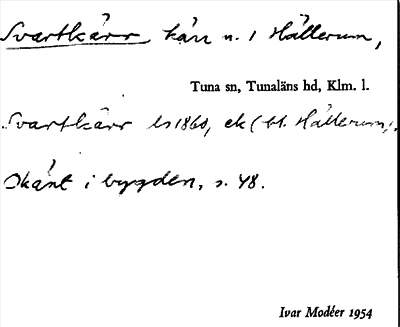 Svartkärr kärr n. 1 Hällerum,
Tuna sn, Tunaläns hd, Klm. l.
Svartkärr ls 1860, ek (bl. Hällerum).
Okänt i bygden, s. 48.
Ivar Modéer 1954